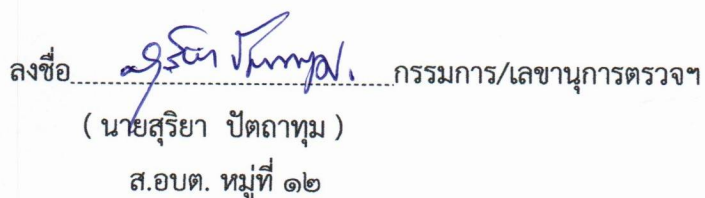 ลงชื่อ สุริยา ปัตถาทุม. กรรมการ/เลขานุการตรวจฯ
( นายสุริยา ปัตถาทุม )
ส.อบต. หมู่ที่ ๑๒